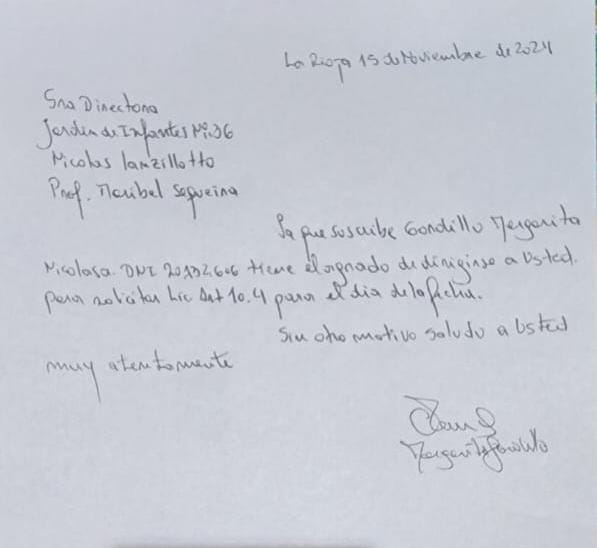 La Rioja 15 de Noviembre de 2024
Sra Directora
Jardin de Infantes Nº 36
Nicolas Lanzillotto
Prof. Maribel
La que suscribe Gordillo Margarita
Nicolasa. DNI tiene el agrado de dirigirse a Usted.
para solicitar Lic Art 10.4 para el dia de la fecha.
Sin otro motivo saludo a Usted
muy atentamente
Margarita Gordillo